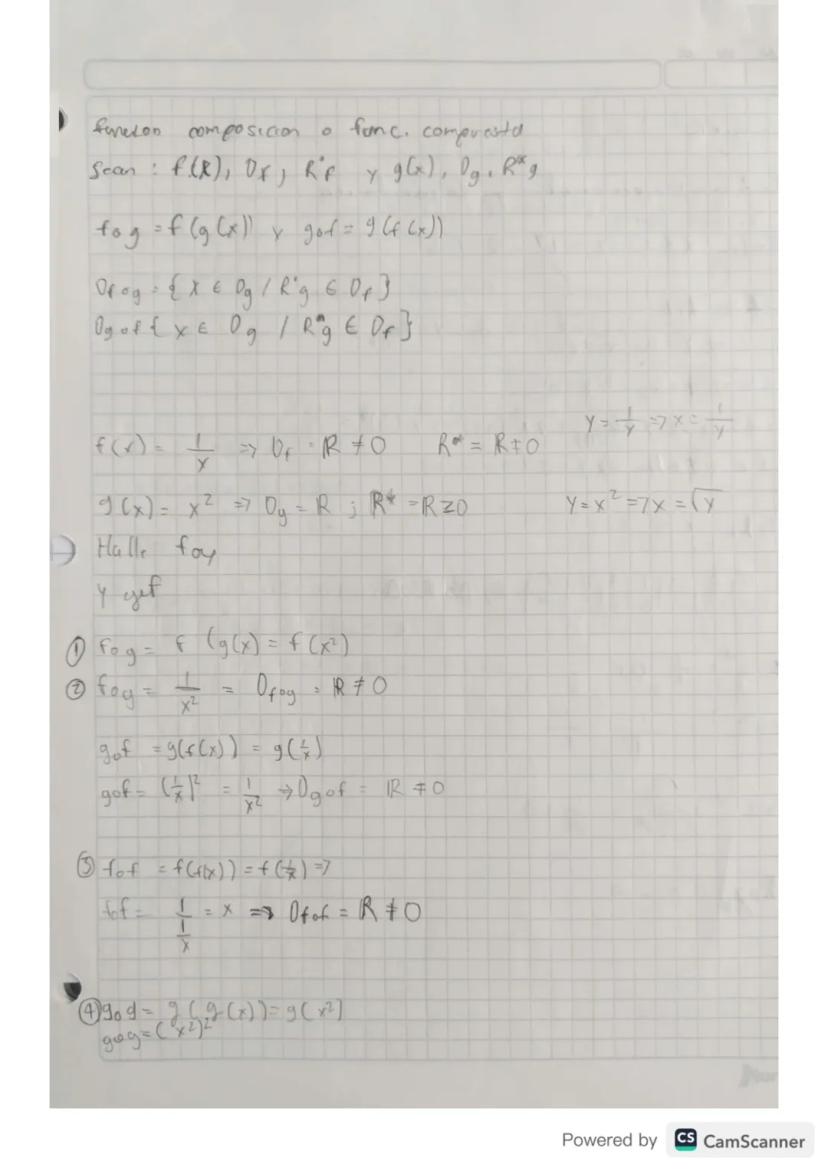 función composición o func. compuesta
Sean : f(x), Df, R*f y g(x), Dg, R*g
fog = f(g(x)) y gof = g(f(x))
Dfog = { x ∈ Dg / R*g ∈ Df }
Dgof { x ∈ Dg / R*g ∈ Df }
y = 1/y => x = 1/y
f(x) = 1/x => Df = R ≠ 0 R* = R ≠ 0
g(x) = x² => Dg = R ; R* = R ≥ 0 y = x² => x = √y
Halle fog
y gof
① fog = f (g(x) = f(x²)
② fog = 1/x² = Dfog = R ≠ 0
gof = g(f(x)) = g(1/x)
gof = (1/x)² = 1/x² → Dgof = R ≠ 0
③ fof = f(f(x)) = f(1/x) =>
fof = 1/(1/x) = x => Dfof = R ≠ 0
④ gog = g(g(x)) = g(x²)
gog = (x²)²
Powered by CS CamScanner